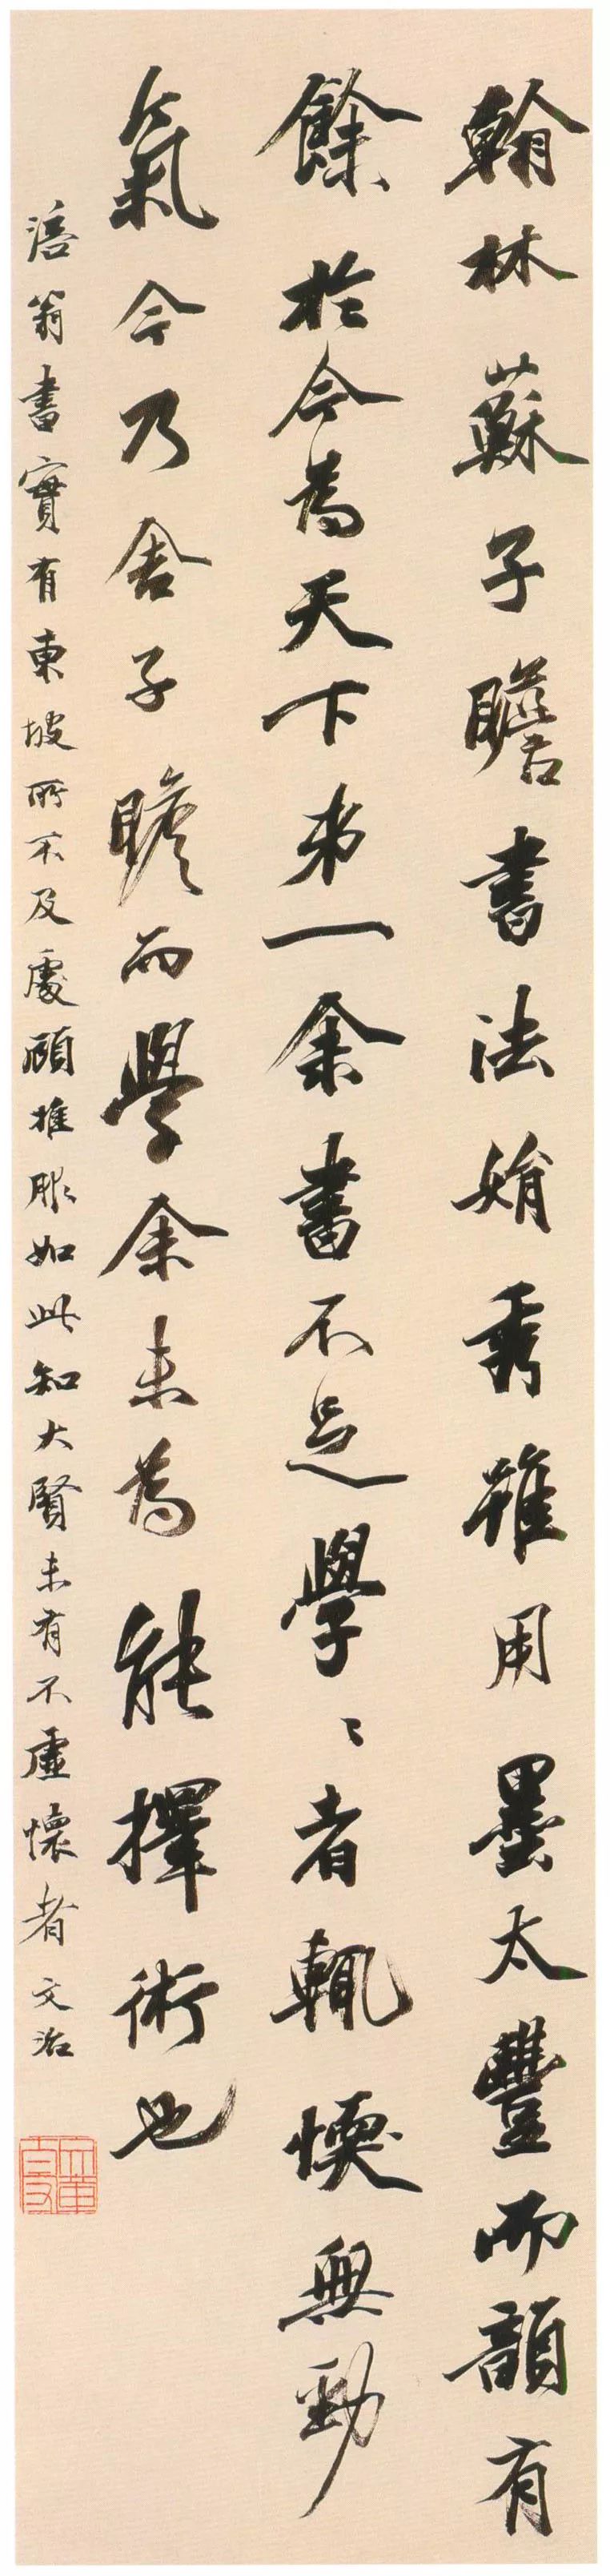 翰林蘇子瞻書法娟秀雖用墨太豐而韻有
餘於今為天下第一余書不足學〻者輒愞無勁
氣今乃舍子瞻而學余未為能擇術也
涪翁書實有東坡所不及處顧推服如此知大賢未有不虛懷者文治